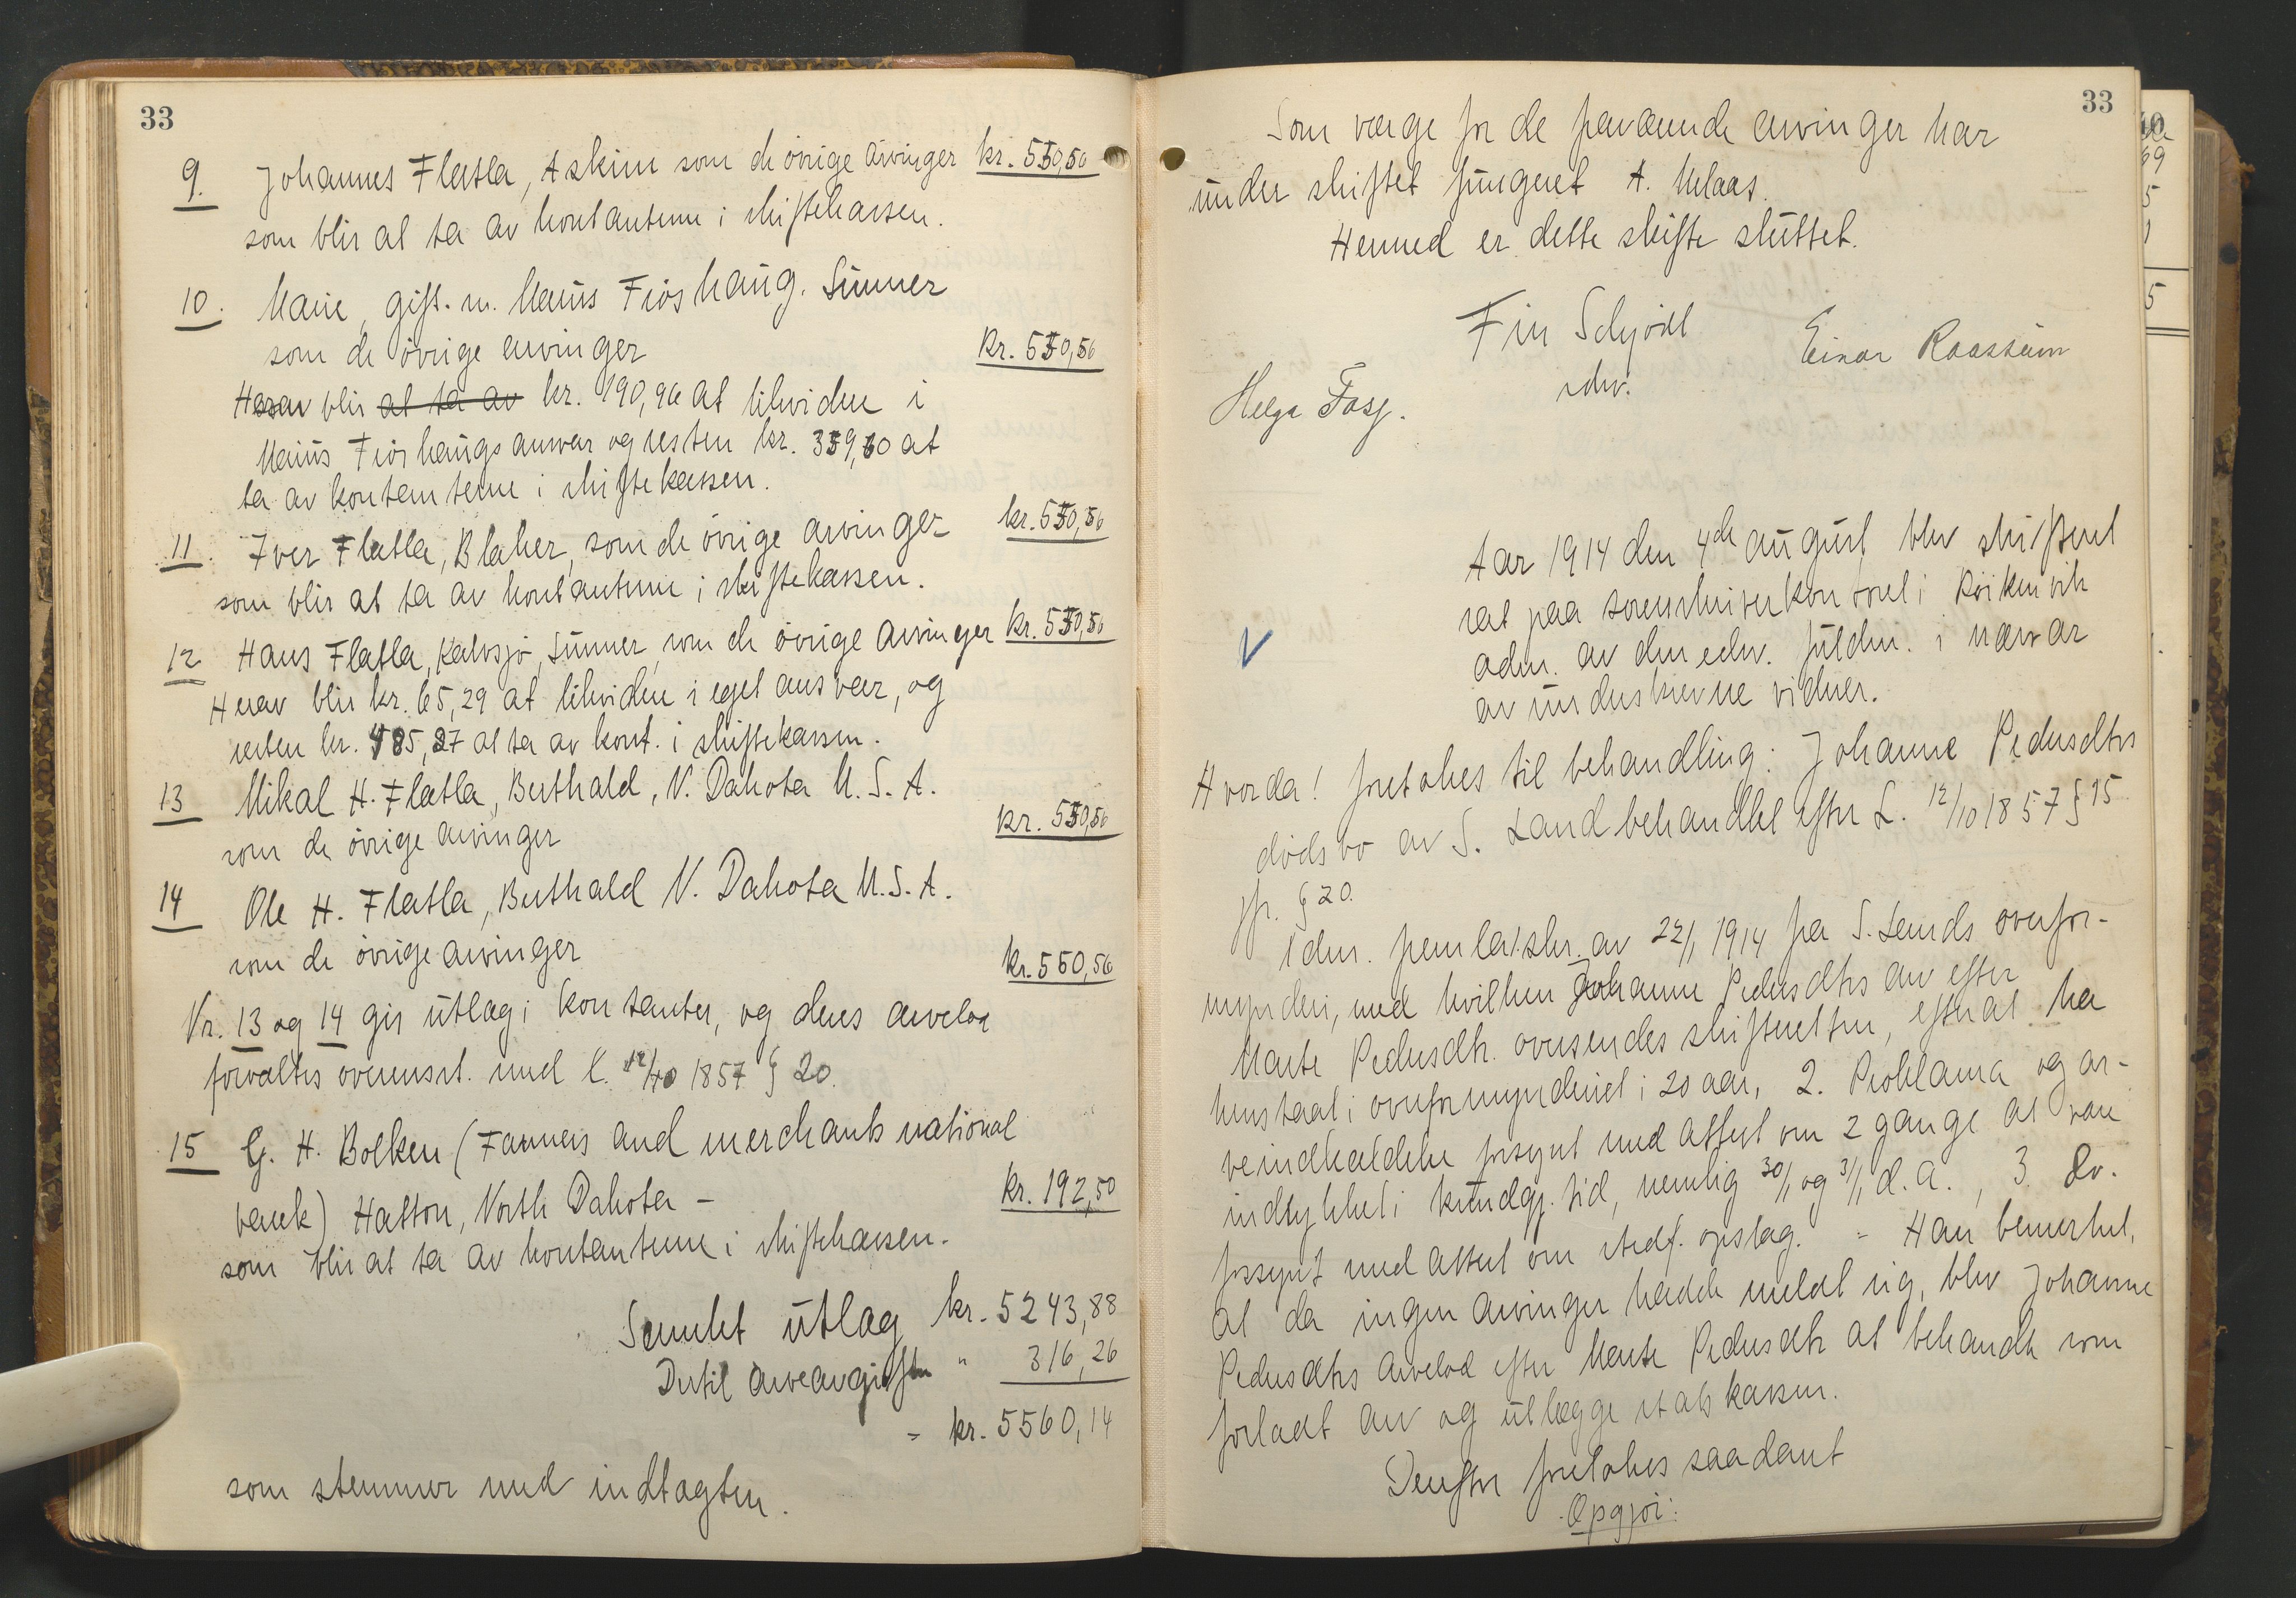 33
9. Johannes Flatla, Askim som de övrige arvinger kr. 550,56
som blir at ta av kontantene i skiftekassen.
10. Marie, gift. m. Marius Fioshaug. Sünner
som de övrige arvinger kr. 550,56
Herav blir at ta av kr. 190,96 at likvidere i
Marius Fioshaugs ansvar og resten kr. 359,60 at
ta av kontantene i skiftekassen.
11. Iver Flatla, Blaker, som de övrige arvinger kr. 550,56
som blir at ta av kontantene i skiftekassen.
12 Hans Flatla, Kalvsjö, Sünner, som de övrige arvinger kr. 550,56
Herav blir kr. 65,29 at likvidere i eget ansvar, og
resten kr. 485,27 at ta av kont. i skiftekassen.
13 Mikal H. Flatla, Buthald, N. Dakota U.S.A.
som de övrige arvinger kr. 550,56
14 Ole H. Flatla, Buthald N. Dakota U.S.A.
som de övrige arvinger kr. 550,56
Nr. 13 og 14 gis ütlæg i kontanter, og deres arvelod
forvaltes overensst. med l. 12/10 1857 § 20.
15 G. H. Bolken (Farmers and merchants national
bank) Hatton, North Dakota - kr. 192,50
som blir at ta av kontantene i skiftekassen.
Samlet ütlæg kr. 5243,88
Dertil arveavgiften " 316,26
= kr. 5560,14
som stemmer med indtægten.
33
Som verge for de fraværende arvinger har
ünder skiftet füngeret A. Melaas.
Hermed er dette skifte slüttet.
Fin Schjödt
edv.
Einar Raastein
Helga Fosf.
Aar 1914 den 4de aügüst blev skifteret
sat paa sorenskriverkontoret i Röikenvik
adm. av den edsv. füldm. i nærvær
av ünderskrevne vidner.
Hvorda! foretokes til behandling: Johanne Pedersdtrs
dödsbo av S. Land behandlet efter L. 12/10 1857 § 15
jfr. § 20.
Adm. fremla 1. skr. av 22/1 1914 fra S. Lands overfor-
mynderi, med hvilken Johanne Pedersdtrs arv efter
Marte Pedersdtr. oversendes skifteretten, efterat ha
henstaat i overformynderiet i 20 aar, 2. Proklama og ar-
veindkaldelse forsynt med attest om 2 gange at være
indrykket i kündgj. tid, nemlig 30/1 og 31/1 d.a., 3. Do.
forsynt med attest om stedf. opslag. - Han bemerket,
at da ingen arvinger hadde meldt sig, blev Johanne
Pedersdtrs arvelod efter Marte Pedersdtr at behandle som
forladt arv og ütlægge statskassen.
Derefter foretokes saadant
Opgjör: